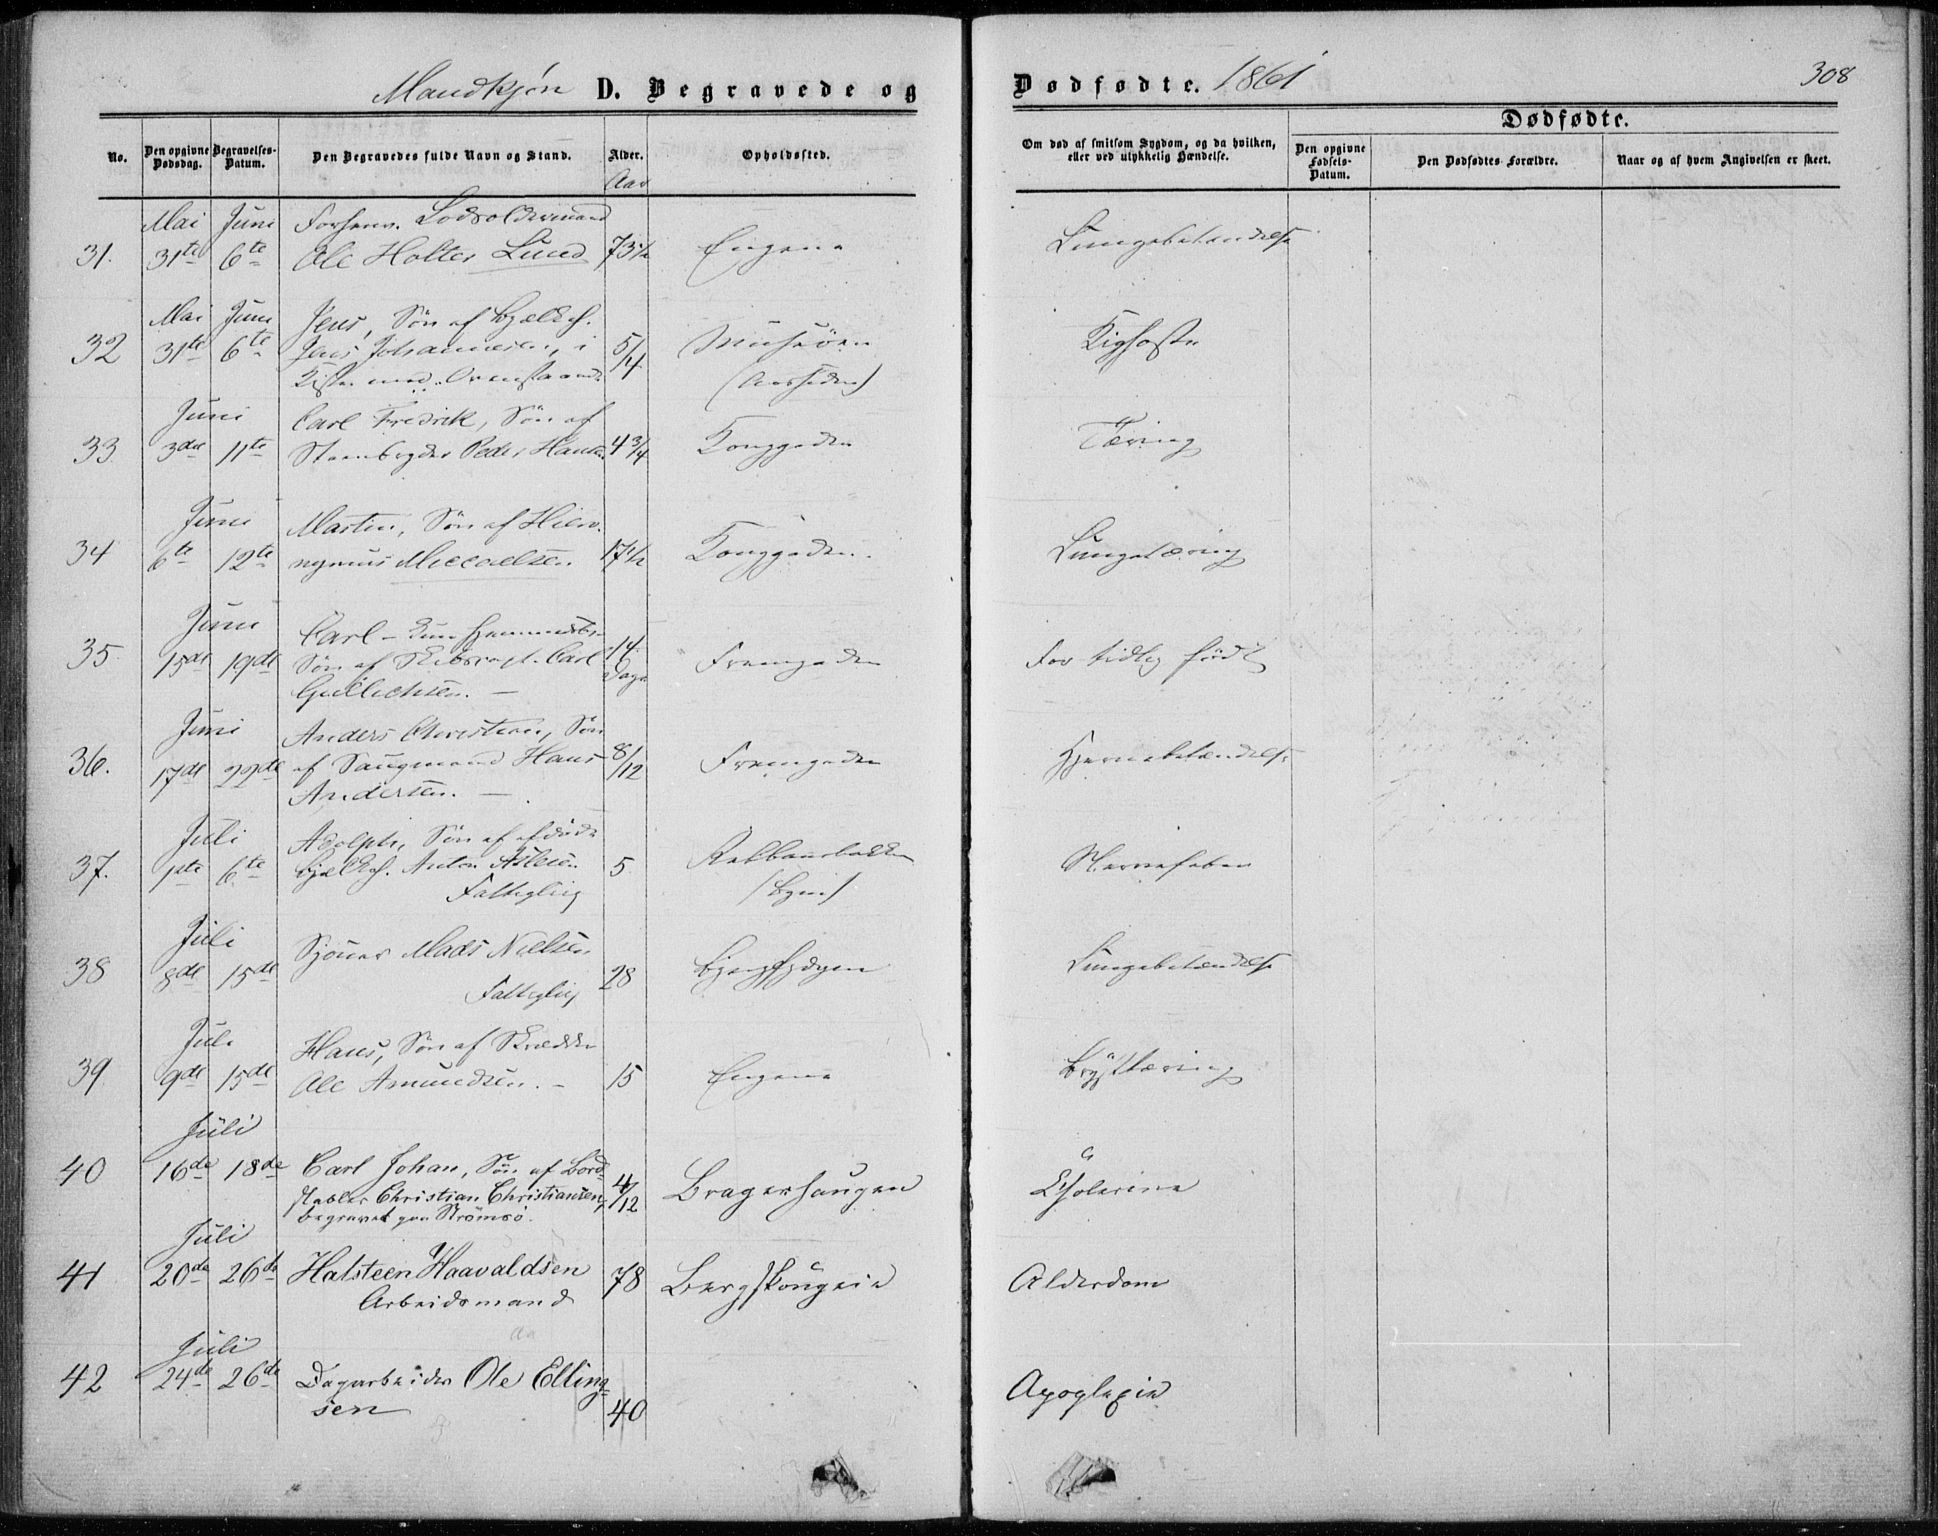 Mandkjøn D. Begravede og Dødfødte. 1861 308
No. Den opgivne Dødsdag. Begravelses-Datum. Den Begravedes fulde Navn og Stand. Alder. Opholdssted. Om død af smitsom Sygdom, og da hvilken, eller ved ulykkelig Hændelse. Dødfødte. Den opgivne Fødsels-Datum. Den Dødfødtes Forældre. Naar og af hvem Angivelsen er skeet.
Aar
Mai Juni Forhenv. Lodsoldermand
31. 31te 6te Ole Holter Lund 73½ Engene Lungebetændelse
Mai Juni Jens, Søn af
32 31te 6te Jens Johannesen, i 5/4 Kighoste
Kiste med Ovenstaaende
Juni Carl Fredrik, Søn af
33 3die 11te Steenbryder Peder Hansen 4¾ Konggaden Tæring
Juni Martin, Søn af Hiero-
34 6te 12te nymus Miccaelsen 17½ Konggaden. Lungetæring
Juni Carl - kun hjemmedøbt
35. 15de 19de Søn af Skibscapt. Carl 14 Dage Fremgaden For tidlig født
Gullichsen. -
Juni Anders Christian, Søn
36. 17de 22de af Saugmand Hans 8/12 Fremgaden Hjernebetændelse
Andersen. -
Juli Adolph, Søn af afdøde
37. 1ste 6te Anton Aslesen 5 Nervefeber
Fattiglig
Juli Sjouer Mads Nielsen
38 8de 15de 28 Lungebetændelse
Fattiglig
Juli Hans, Søn af Skrædder
39. 9de 15de Ole Amundsen. - 15 Engene Brysttæring
Juli
40 16de 18de Carl Johan, Søn af Bord- 4/12 Bragerhaugen Cholerine
stabler Christian Christiansen,
begravet paa Strømsø.
Juli
41 20de 26de Halsteen Haavaldsen 78 Bergskougeie Alderdom
Arbeidsmand
Juli
42 24de 26de Dagarbeider Ole Elling- Apoplexie
sen 40